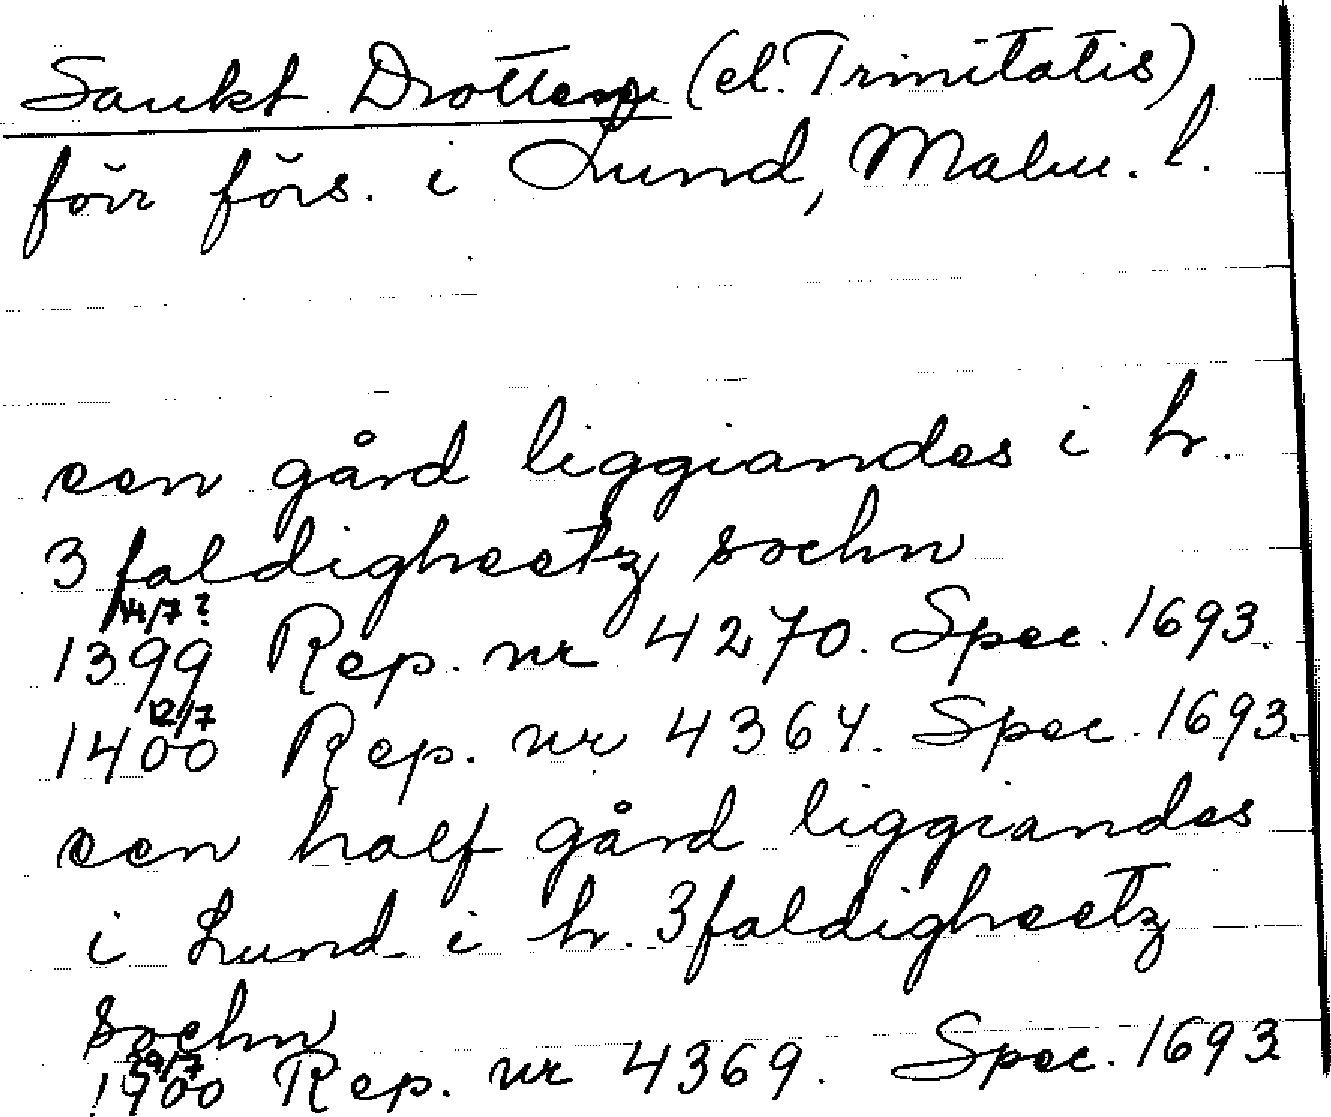 Sankt Drottens (el. Trinitatis)
förr förs. i Lund, Malm. l.
een gård liggiandes i h.
3faldigheetz sochn
14/7?
1399 Rep. nr 4270. Spec. 1693.
12/7
1400 Rep. nr 4364. Spec. 1693.
een half gård liggiandes
i Lund i h. 3faldigheetz
sochn
1400 Rep. nr 4369. Spec. 1693